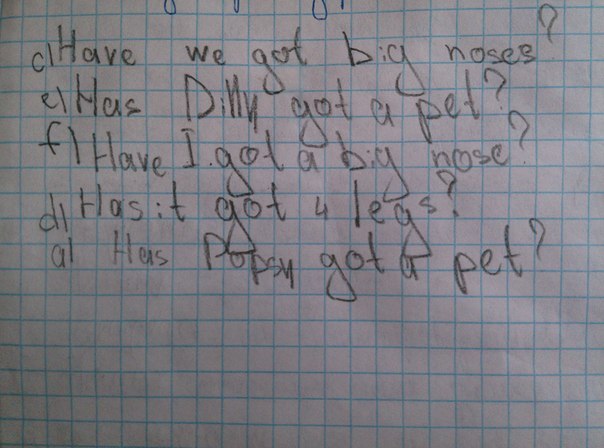 c) Have we got big noses?
e) Has Dilly got a pet?
f) Have I got a big nose?
d) Has it got 4 legs?
a) Has Popsy got a pet?